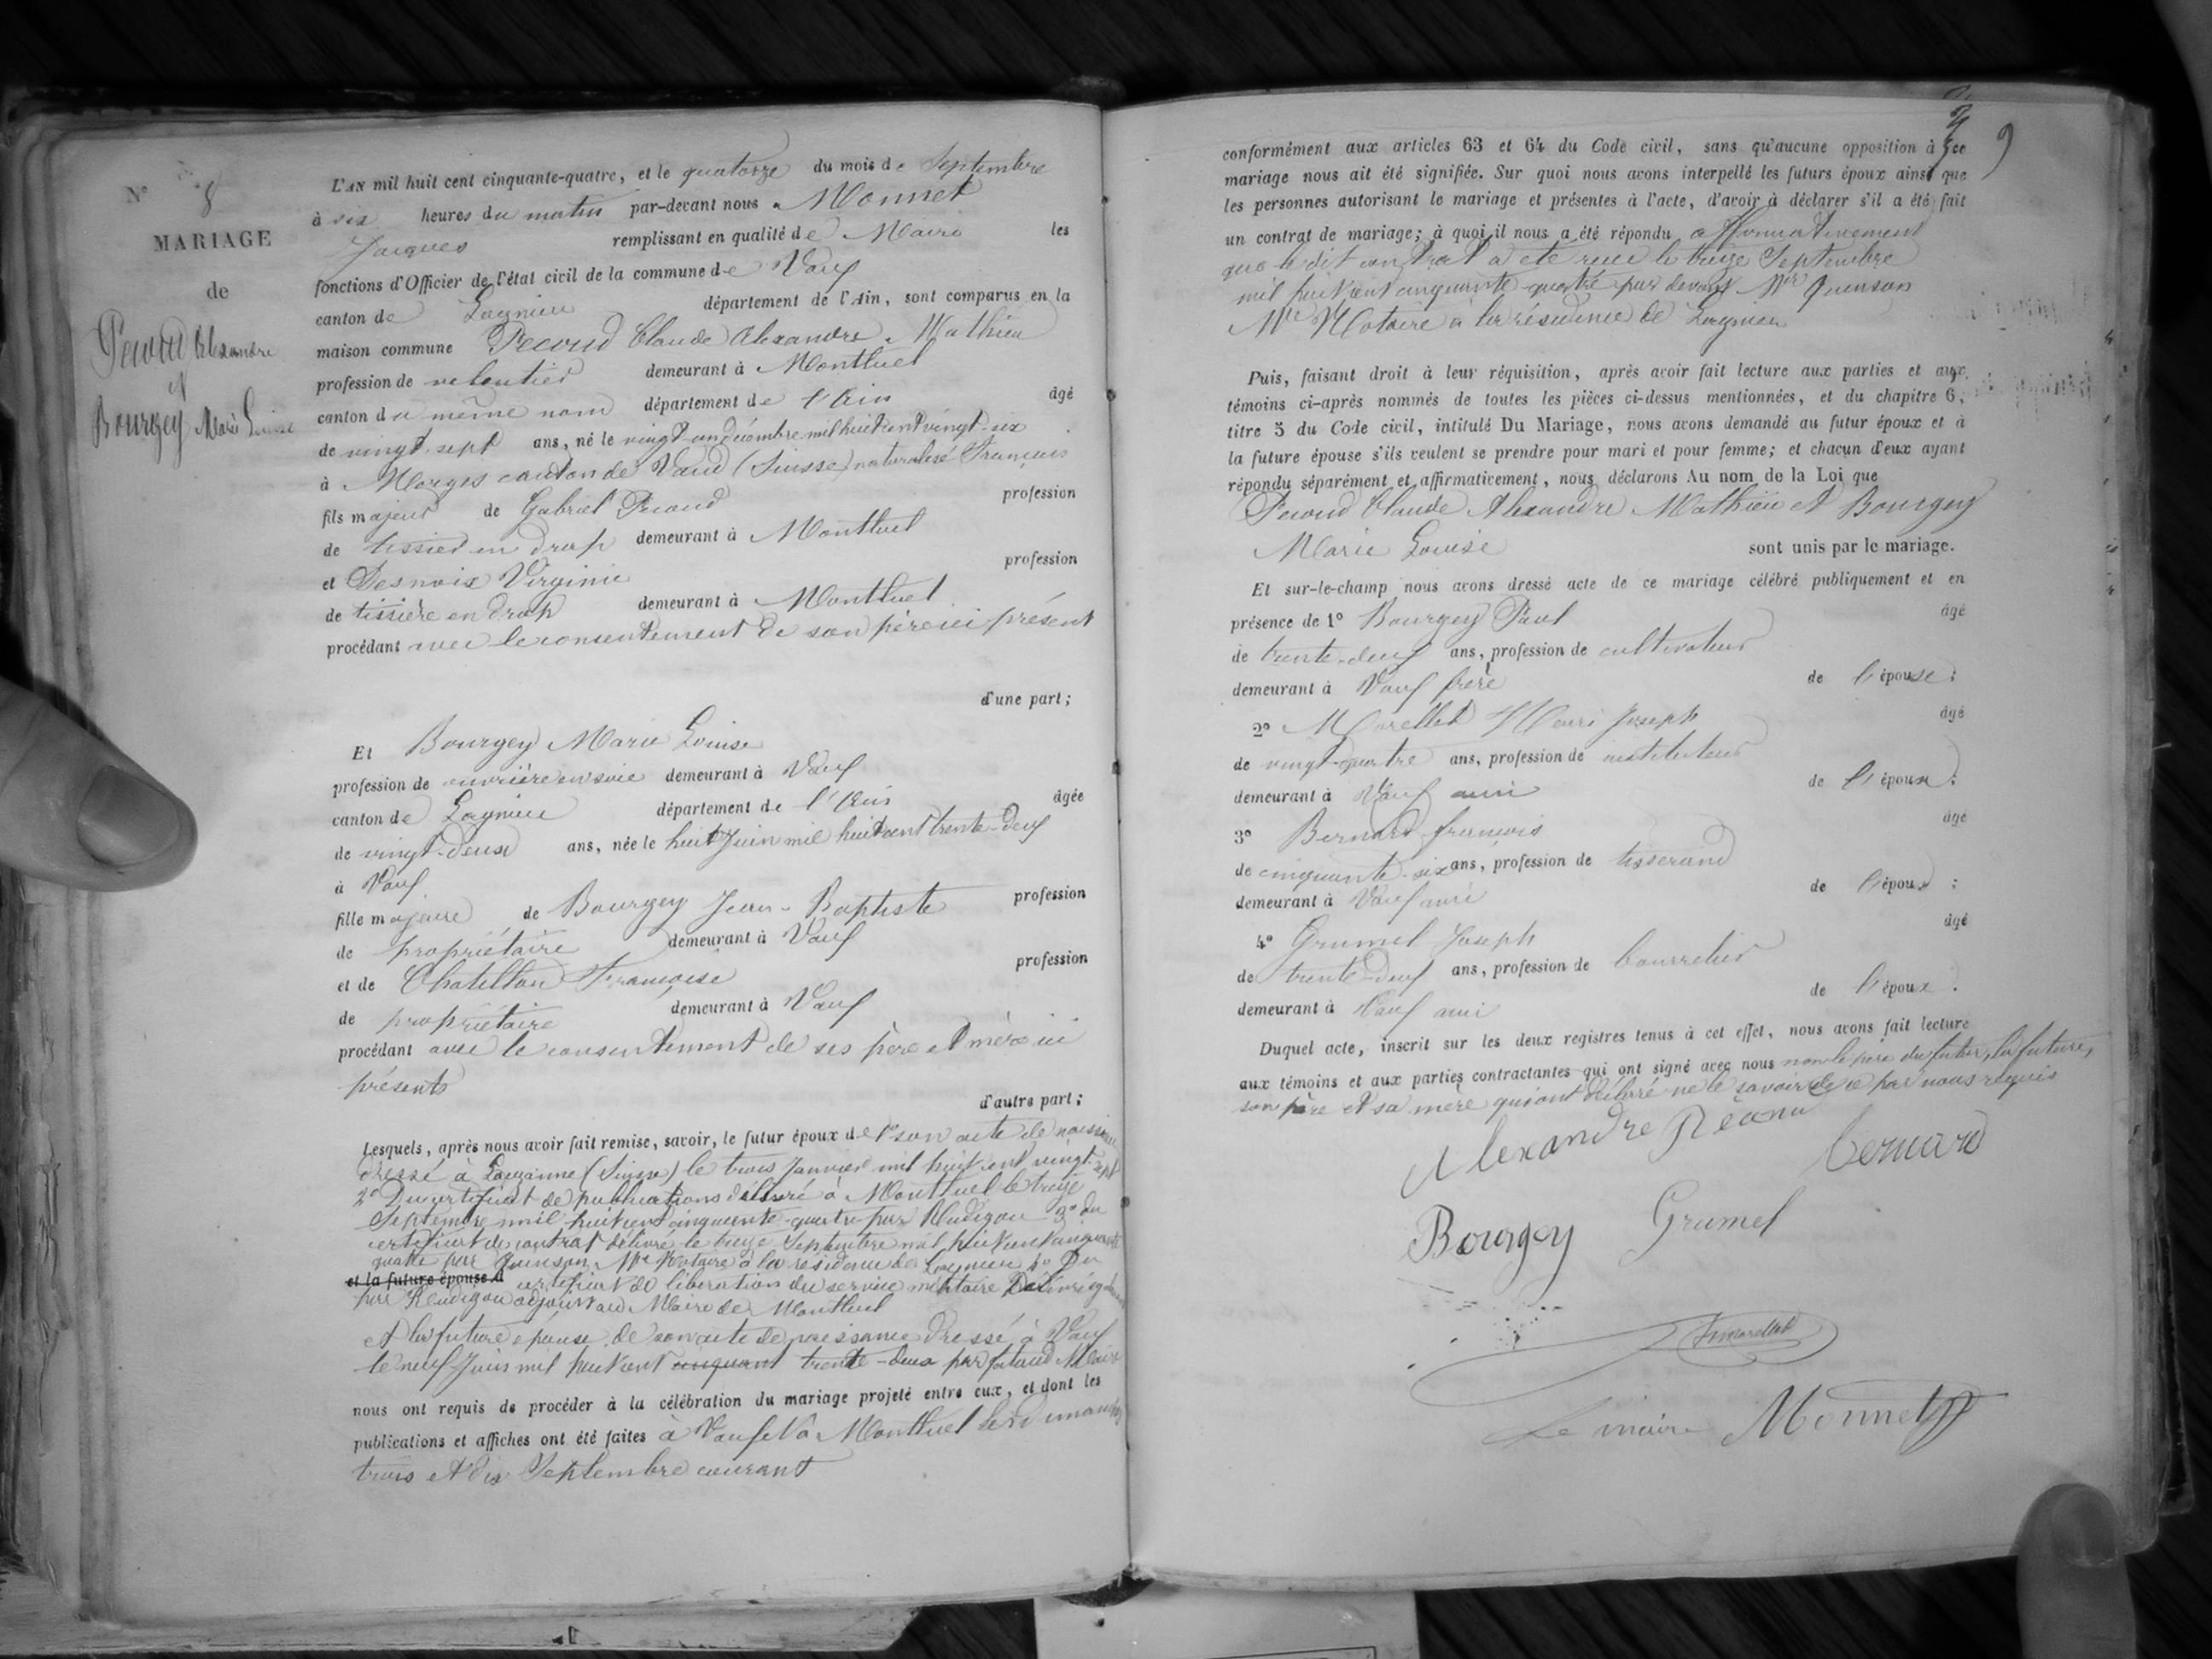 N° 8
MARIAGE
de
Pecoud Alexandre
et
Bourgey Marie Louise
L'AN mil huit cent cinquante-quatre, et le quatorze du mois de Septembre
à six heures du matin par-devant nous Monnet
Jacques remplissant en qualité de Maire les
fonctions d'Officier de l'état civil de la commune de Vaux
canton de Lagnieu département de l'Ain, sont comparus en la
maison commune Pecoud Claude Alexandre Mathieu
profession de veloutier demeurant à Montluel
canton du même nom département de l'Ain âgé
de vingt-sept ans, né le vingt-un décembre mil huit cent vingt-six
à Morges canton de Vaud (Suisse) naturalisé Français
fils majeur de Gabriel Pecoud profession
de tissier en drap demeurant à Montluel
et Desnoix Virginie profession
de tissière en drap demeurant à Montluel
procédant avec le consentement de son père ici présent
d'une part;
Et Bourgey Marie Louise
profession de ouvrière en soie demeurant à Vaux
canton de Lagnieu département de l'Ain âgée
de vingt-deux ans, née le huit Juin mil huit cent trente-deux
à Vaux
fille majeure de Bourgey Jean-Baptiste profession
de propriétaire demeurant à Vaux
et de Chatillon Françoise profession
de propriétaire demeurant à Vaux
procédant avec le consentement de ses père et mère ici
présents
d'autre part;
Lesquels, après nous avoir fait remise, savoir, le futur époux de 1° son acte de naissance
dressé à Lauzanne (Suisse) le trois Janvier mil huit cent vingt-sept
2° Du certificat de publications délivré à Montluel le treize
Septembre mil huit cent cinquante-quatre par Rudigou 3° du
certificat de contrat délivré le treize Septembre mil huit cent cinquante
quatre par Quinson Me Notaire à la résidence de Lagnieu 4° Du
et la future épouse d certificat de libération du service militaire Délivré
par Rudigou adjoint au Maire de Montluel
et la future épouse de son acte de naissance dressé à Vaux
le neuf Juin mil huit cent cinquant trente-deux par Maire
nous ont requis de procéder à la célébration du mariage projeté entre eux, et dont les
publications et affiches ont été faites à Vaux et à Montluel les dimanches
trois et dix Septembre courant
9
conformément aux articles 63 et 64 du Code civil, sans qu'aucune opposition à ce
mariage nous ait été signifiée. Sur quoi nous avons interpellé les futurs époux ainsi que
les personnes autorisant le mariage et présentes à l'acte, d'avoir à déclarer s'il a été fait
un contrat de mariage; à quoi il nous a été répondu affirmativement
que le dit contrat a été reçu le treize Septembre
mil huit cent cinquante-quatre par devant Me Quinson
Me Notaire à la résidence de Lagnieu
Puis, faisant droit à leur réquisition, après avoir fait lecture aux parties et aux
témoins ci-après nommés de toutes les pièces ci-dessus mentionnées, et du chapitre 6,
titre 5 du Code civil, intitulé Du Mariage, nous avons demandé au futur époux et à
la future épouse s'ils veulent se prendre pour mari et pour femme; et chacun d'eux ayant
répondu séparément et affirmativement, nous déclarons Au nom de la Loi que
Pecoud Claude Alexandre Mathieu et Bourgey
Marie Louise sont unis par le mariage.
Et sur-le-champ nous avons dressé acte de ce mariage célébré publiquement et en
présence de 1° Bourgey Paul âgé
de trente-deux ans, profession de cultivateur
demeurant à Vaux frère de l'épouse;
2° Morellet Henri Joseph âgé
de vingt-quatre ans, profession de instituteur
demeurant à Vaux ami de l'époux;
3° Bernard françois âgé
de cinquante-six ans, profession de tisserand
demeurant à Vaux ami de l'époux;
4° Grumel Joseph âgé
de trente-deux ans, profession de bourrelier
demeurant à Vaux ami de l'époux.
Duquel acte, inscrit sur les deux registres tenus à cet effet, nous avons fait lecture
aux témoins et aux parties contractantes qui ont signé avec nous non le père du futur, la future,
son père et sa mère qui ont déclaré ne le savoir de ce par nous requis
Alexandre Pecoud
bernard
Bourgey Grumel
hmorellet
Le maire Monnet